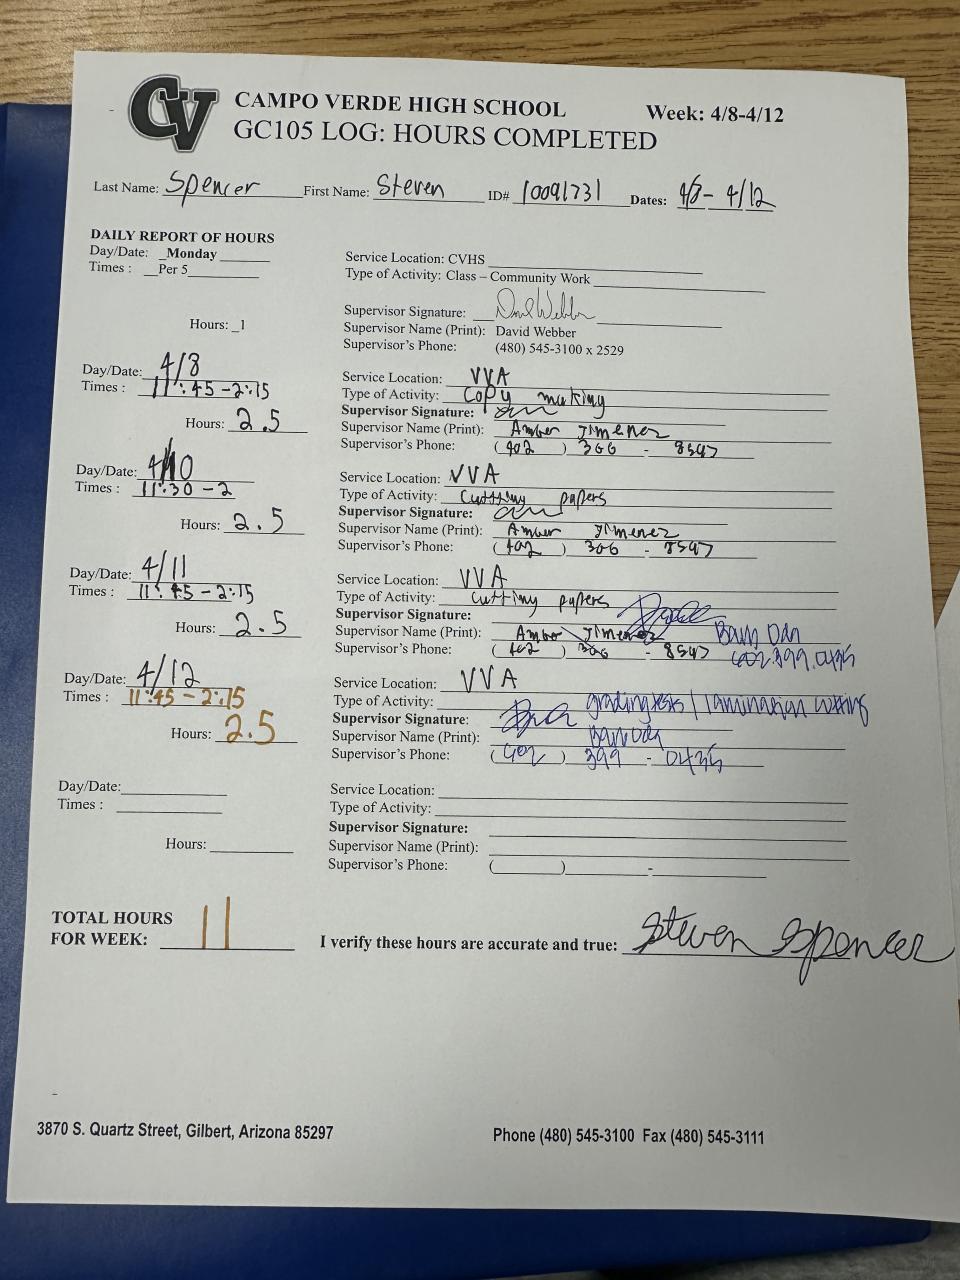 CV
CAMPO VERDE HIGH SCHOOL Week: 4/8-4/12
GC105 LOG: HOURS COMPLETED
Last Name: Spencer First Name: Steven ID# 10091731 Dates: 4/8 - 4/12
DAILY REPORT OF HOURS
Day/Date: _Monday
Times : __Per 5
Service Location: CVHS
Type of Activity: Class – Community Work
Supervisor Signature: David Webber
Hours: _1
Supervisor Name (Print): David Webber
Supervisor's Phone: (480) 545-3100 x 2529
Day/Date: 4/8
Times : 11:45 - 2:15
Hours: 2.5
Service Location: VVA
Type of Activity: Copy making
Supervisor Signature:
Supervisor Name (Print): Amber Jimenez
Supervisor's Phone: (402) 306 - 8547
Day/Date: 4/10
Times : 11:30 - 2
Hours: 2.5
Service Location: VVA
Type of Activity: Cuttting papers
Supervisor Signature:
Supervisor Name (Print): Amber Jimenez
Supervisor's Phone: (402) 306 - 8547
Day/Date: 4/11
Times : 11:45 - 2:15
Hours: 2.5
Service Location: VVA
Type of Activity: Cutting papers
Supervisor Signature:
Supervisor Name (Print): Amber Jimenez
Supervisor's Phone: (402) 306 - 8547 602.399.0435
Day/Date: 4/12
Times : 11:45 - 2:15
Hours: 2.5
Service Location: VVA
Type of Activity: grading tests / lamination cutting
Supervisor Signature:
Supervisor Name (Print):
Supervisor's Phone: (602) 399 - 0435
Day/Date:
Times :
Hours:
Service Location:
Type of Activity:
Supervisor Signature:
Supervisor Name (Print):
Supervisor's Phone: ( ) -
TOTAL HOURS
FOR WEEK: 11
I verify these hours are accurate and true: Steven Spencer
3870 S. Quartz Street, Gilbert, Arizona 85297 Phone (480) 545-3100 Fax (480) 545-3111